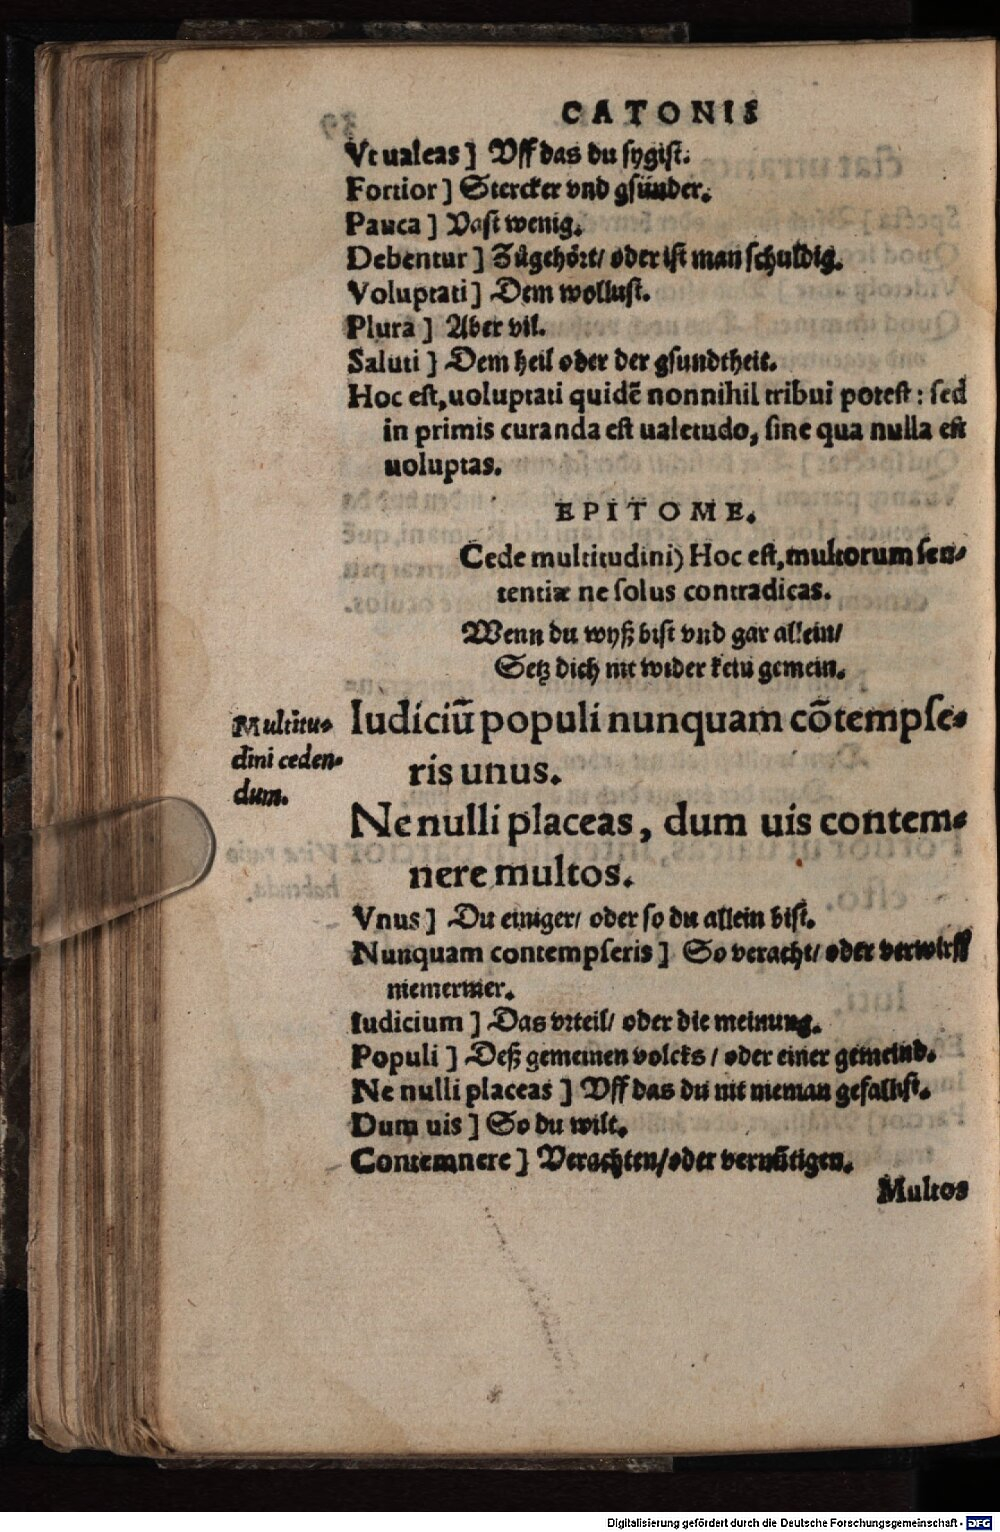 CATONIS
Vt ualeas] Vff das du sygist.
Fortior] Stercker vnd gsünder.
Pauca] Vast wenig.
Debentur] Zůgehört/ oder ist man schuldig.
Voluptati] Dem wollust.
Plura] Aber vil.
Saluti] Dem heil oder der gsundtheit.
Hoc est, uoluptati quidē nonnihil tribui potest : sed
in primis curanda est ualetudo, sine qua nulla est
uoluptas.
EPITOME.
Cede multitudini) Hoc est, multorum sen-
tentiæ ne solus contradicas.
Wenn du wyß bist vnd gar allein/
Setz dich nit wider kein gemein.
Multitu-
dini ceden-
dum.
Iudiciū populi nunquam cōtempse-
ris unus.
Ne nulli placeas, dum uis contem-
nere multos.
Vnus] Du einiger/ oder so du allein bist.
Nunquam contempseris] So veracht/ oder verwirff
niemermer.
Iudicium] Das vrteil/ oder die meinung.
Populi] Deß gemeinen volcks/ oder einer gemeind.
Ne nulli placeas] Vff das du nit nieman gefallist.
Dum uis] So du wilt.
Contemnere] Verachten/ oder vernütigen.
Multos
Digitalisierung gefördert durch die Deutsche Forschungsgemeinschaft - DFG